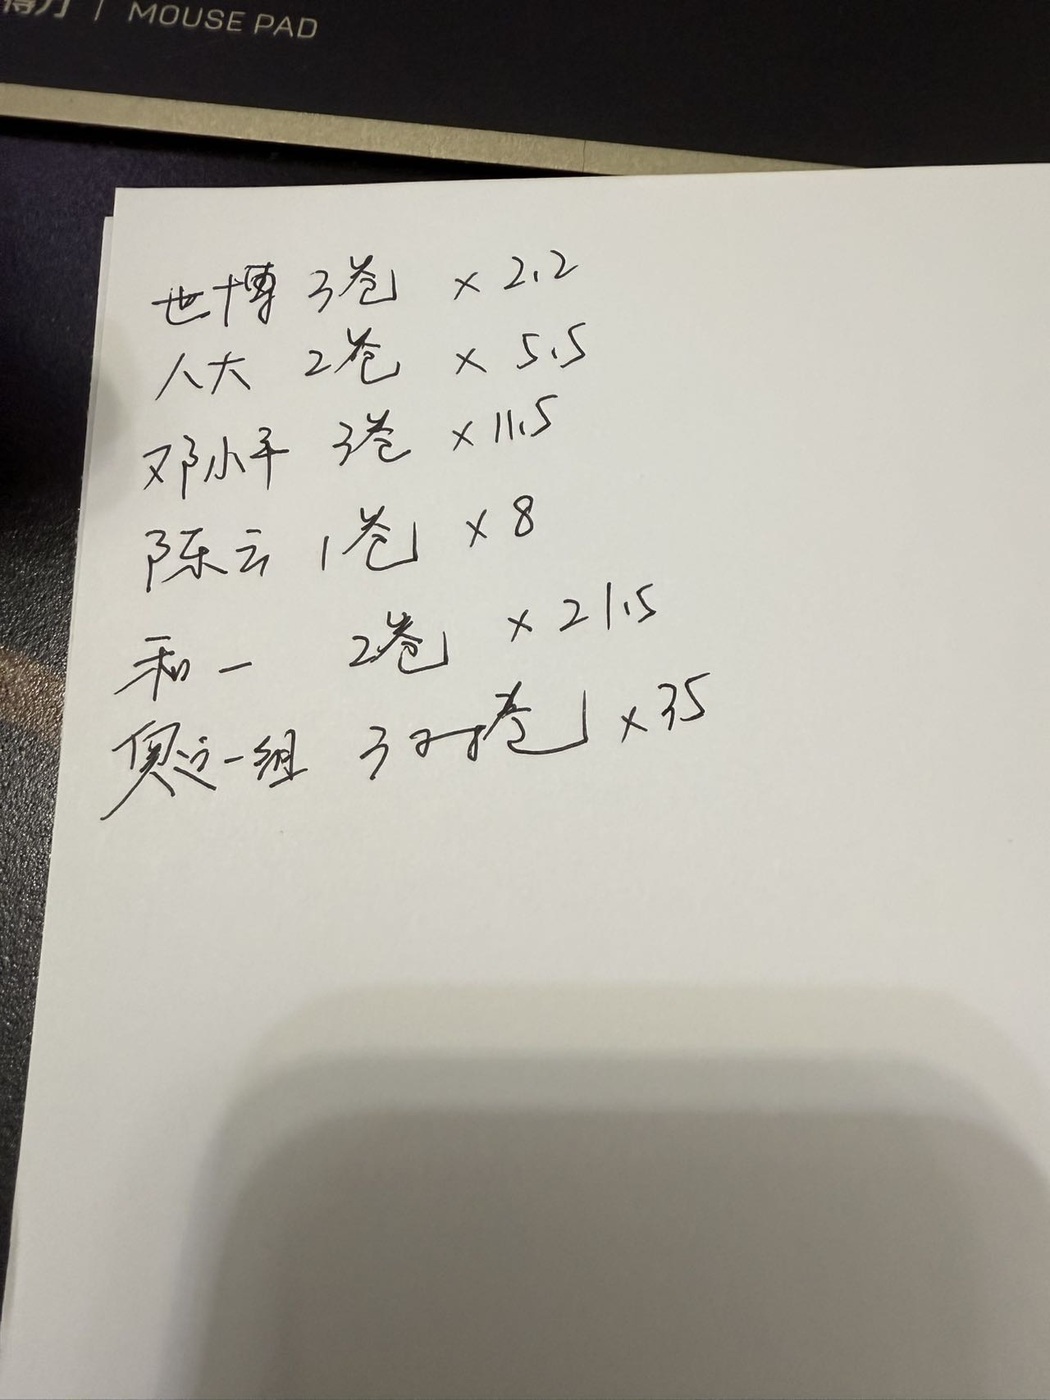 得力 | MOUSE PAD
世博 3卷 × 2.2
人大 2卷 × 5.5
邓小平 3卷 × 11.5
陈云 1卷 × 8
和一 2卷 × 21.5
奥运一组 3对卷 × 35